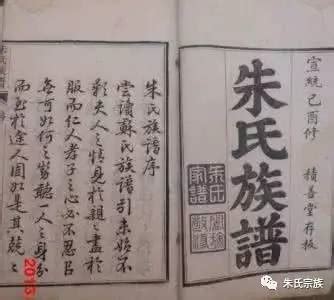 宣統己酉修 積善堂存板
朱氏族譜
朱氏家譜
朱氏族譜序
嘗讀蘇氏族譜引未始不
歎夫人之情見於親之盡於
服而仁人孝子之心必不忍
無可如何之勢聽人之身分
而至於途人固如是其兢兢
2015
朱氏宗族